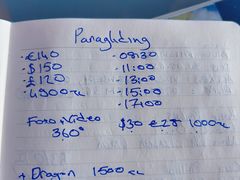 Paragliding
- €140 - 08:30
- $150 - 11:00
- £120 - 13:00
- 4900 - 15:00
- 17:00
Foto Video $30 €25 1000
360°
+ Dragon 1500